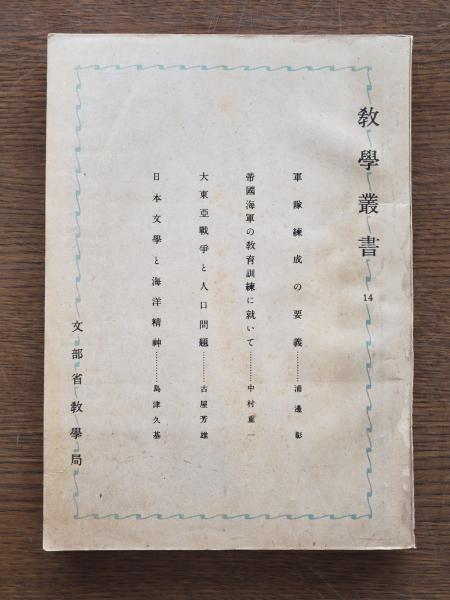 教學叢書
14
軍隊練成の要義…………浦邊彰
帝國海軍の教育訓練に就いて…………中村重一
大東亞戰爭と人口問題…………古屋芳雄
日本文學と海洋精神…………島津久基
文部省教學局